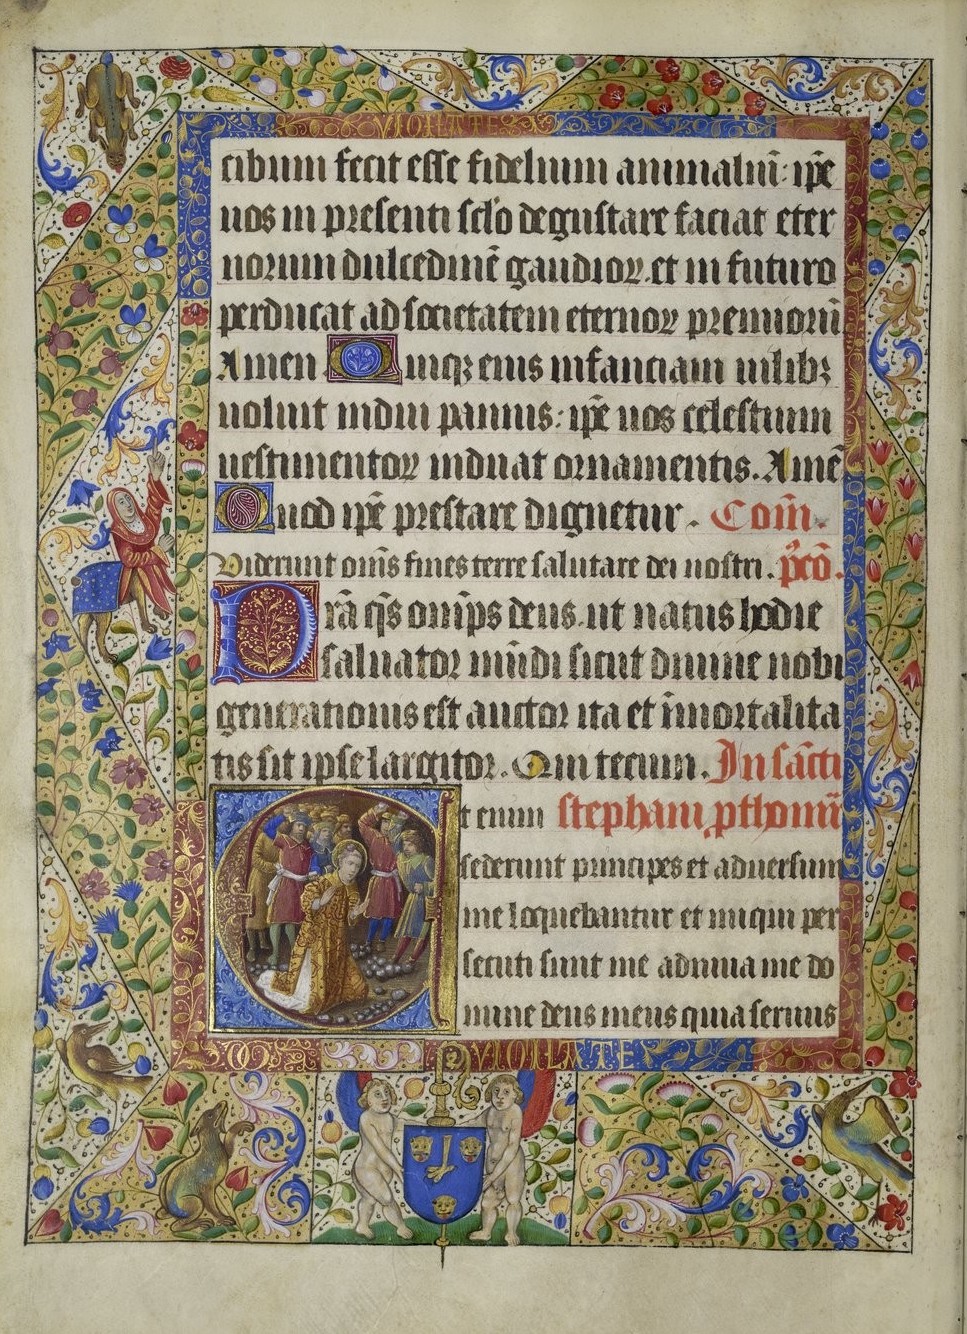 VIOLATE
cibum fecit esse fidelium animaliū: ip̄e
uos in presenti sc̄lo degustare faciat eter
norum dulcedinē gaudioꝝ. et in futuro
perducat ad societatem eternoꝝ premiorū
Amen Quiqꝫ eius infanciam uilibꝫ
uoluit indui pannis: ip̄e uos celestium
uestimentoꝝ induat ornamentis. Amē
Quod ip̄e prestare dignetur. Com̄.
Viderunt om̄s fines terre salutare dei nostri. p̊cō.
Prā q̄s om̄ps deus. ut natus hodie
saluator mūdi sicut diuine nobi
generationis est auctor ita et īmortalita
tis sit ipse largitor. Qui tecum. In sāctī
Et enim stephani ꝓthom̄
sederunt principes et aduersum
me loquebantur et iniqui per
secuti sunt me adiuua me do
mine deus meus quia seruus
VIOLATE